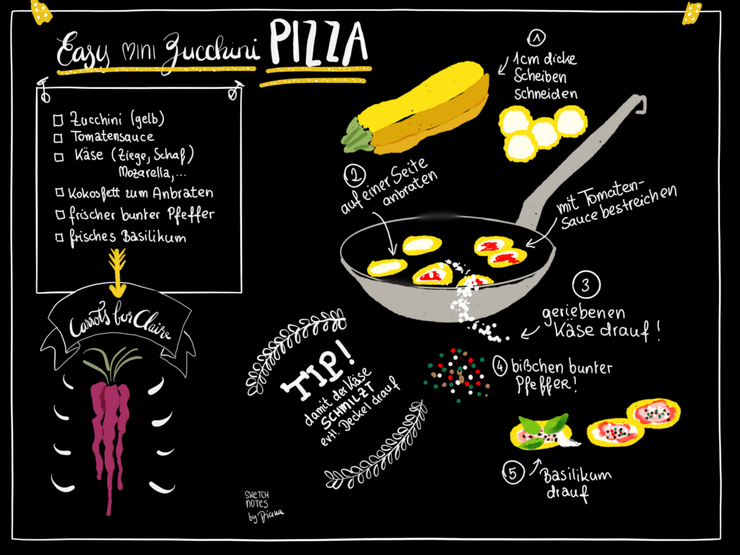 Easy mini Zucchini PIZZA
Zucchini (gelb)
Tomatensauce
Käse (Ziege, Schaf)
Mozarella,...
Kokosfett zum Anbraten
frischer bunter Pfeffer
frisches Basilikum
Carrots for Claire
1
1cm dicke
Scheiben
schneiden
2
auf einer Seite
anbraten
mit Tomaten-
sauce bestreichen
3
geriebenen
Käse drauf!
4 bißchen bunter
Pfeffer!
5 Basilikum
drauf
TIP!
damit der Käse
SCHMILZT
evtl. Deckel drauf
SKETCH
NOTES
by Diana